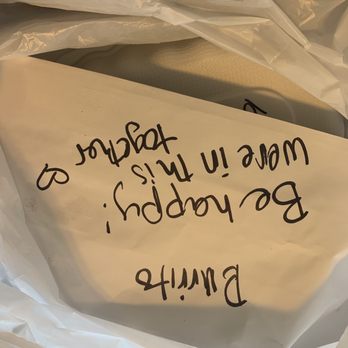 Burrito
Be happy!
We're in this
together